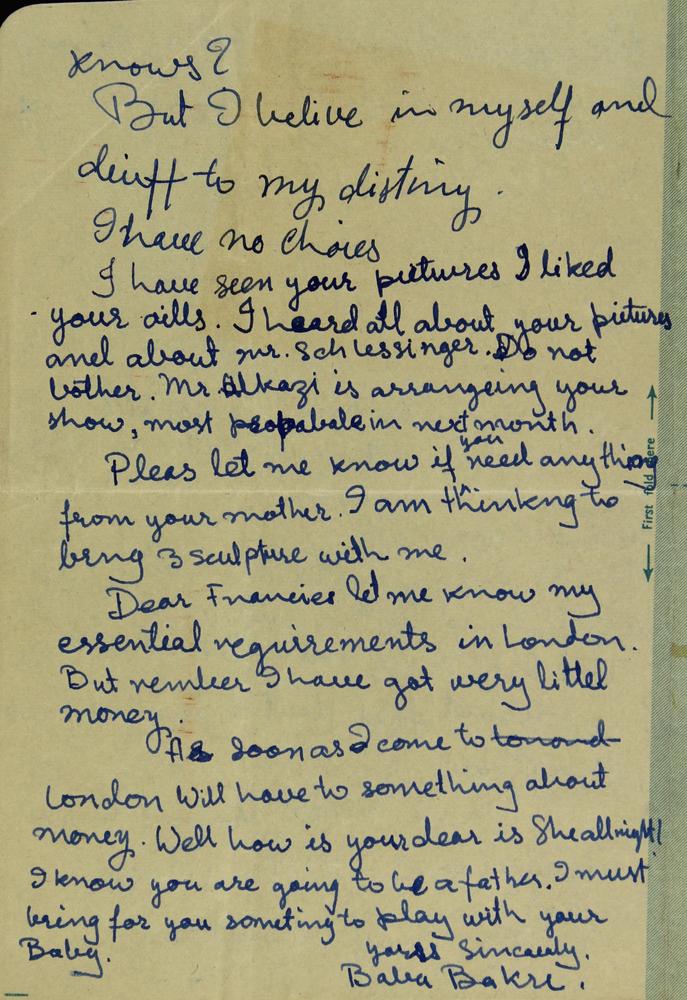 knows?
But I belive in myself and
to my distiny.
I have no choies
I have seen your pictures I liked
your oills. I heard all about your pictures
and about mr. Schlessinger. Do not
bother. Mr Alkazi is arrangeing your
show, most propabale in next month.
Pleas let me know if you need any thing
from your mother. I am thinkng to
bring 3 sculpture with me.
Dear Francies let me know my
essential requirements in London.
But rember I have got very littel
money.
As soon as I come to
London Will have to something about
money. Well how is your dear is She allright!
I know you are going to be a father. I must
bring for you someting to play with your
Baby. yours Sincerely.
Baba Bakre.
First fold here